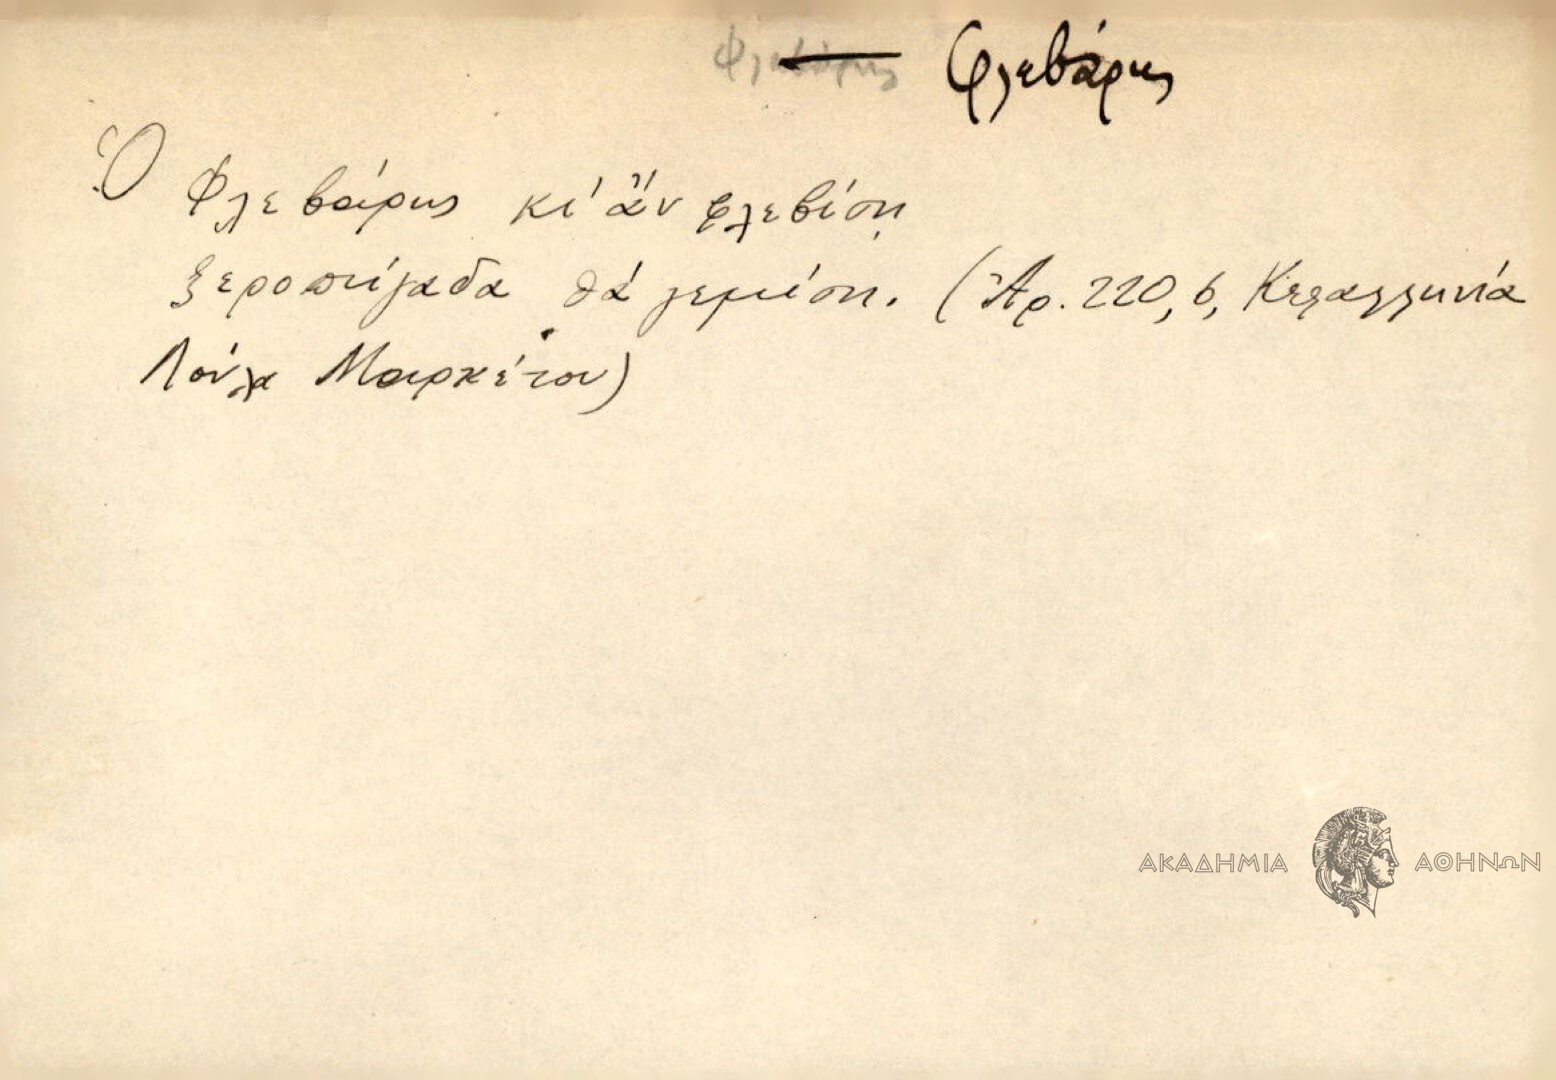 Φλεβάρης — Φλεβάρης
Ὁ Φλεβάρης κι' ἂν φλεβίσῃ
ξεροπήγαδα θά γεμίσῃ. (Ἀρ. 220, 6, Κεφαλληνία
Λούλα Μαρκέτου)
ΑΚΑΔΗΜΙΑ ΑΘΗΝΩΝ